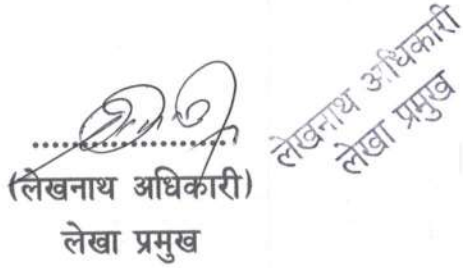 (लेखनाथ अधिकारी)
लेखा प्रमुख
लेखनाथ अधिकारी
लेखा प्रमुख